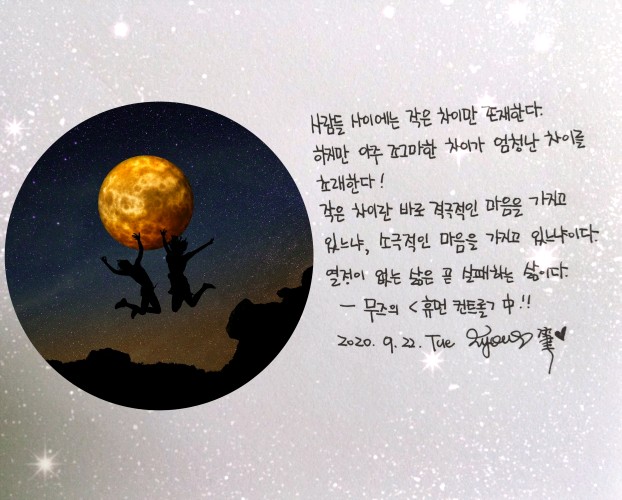 사람들 사이에는 작은 차이만 존재한다.
하지만 아주 조그마한 차이가 엄청난 차이를
초래한다!
작은 차이란 바로 적극적인 마음을 가지고
있느냐, 소극적인 마음을 가지고 있느냐이다.
열정이 없는 삶은 곧 실패하는 삶이다.
- 무즈의 <휴먼 컨트롤> 中!!
2020. 9. 22. Tue